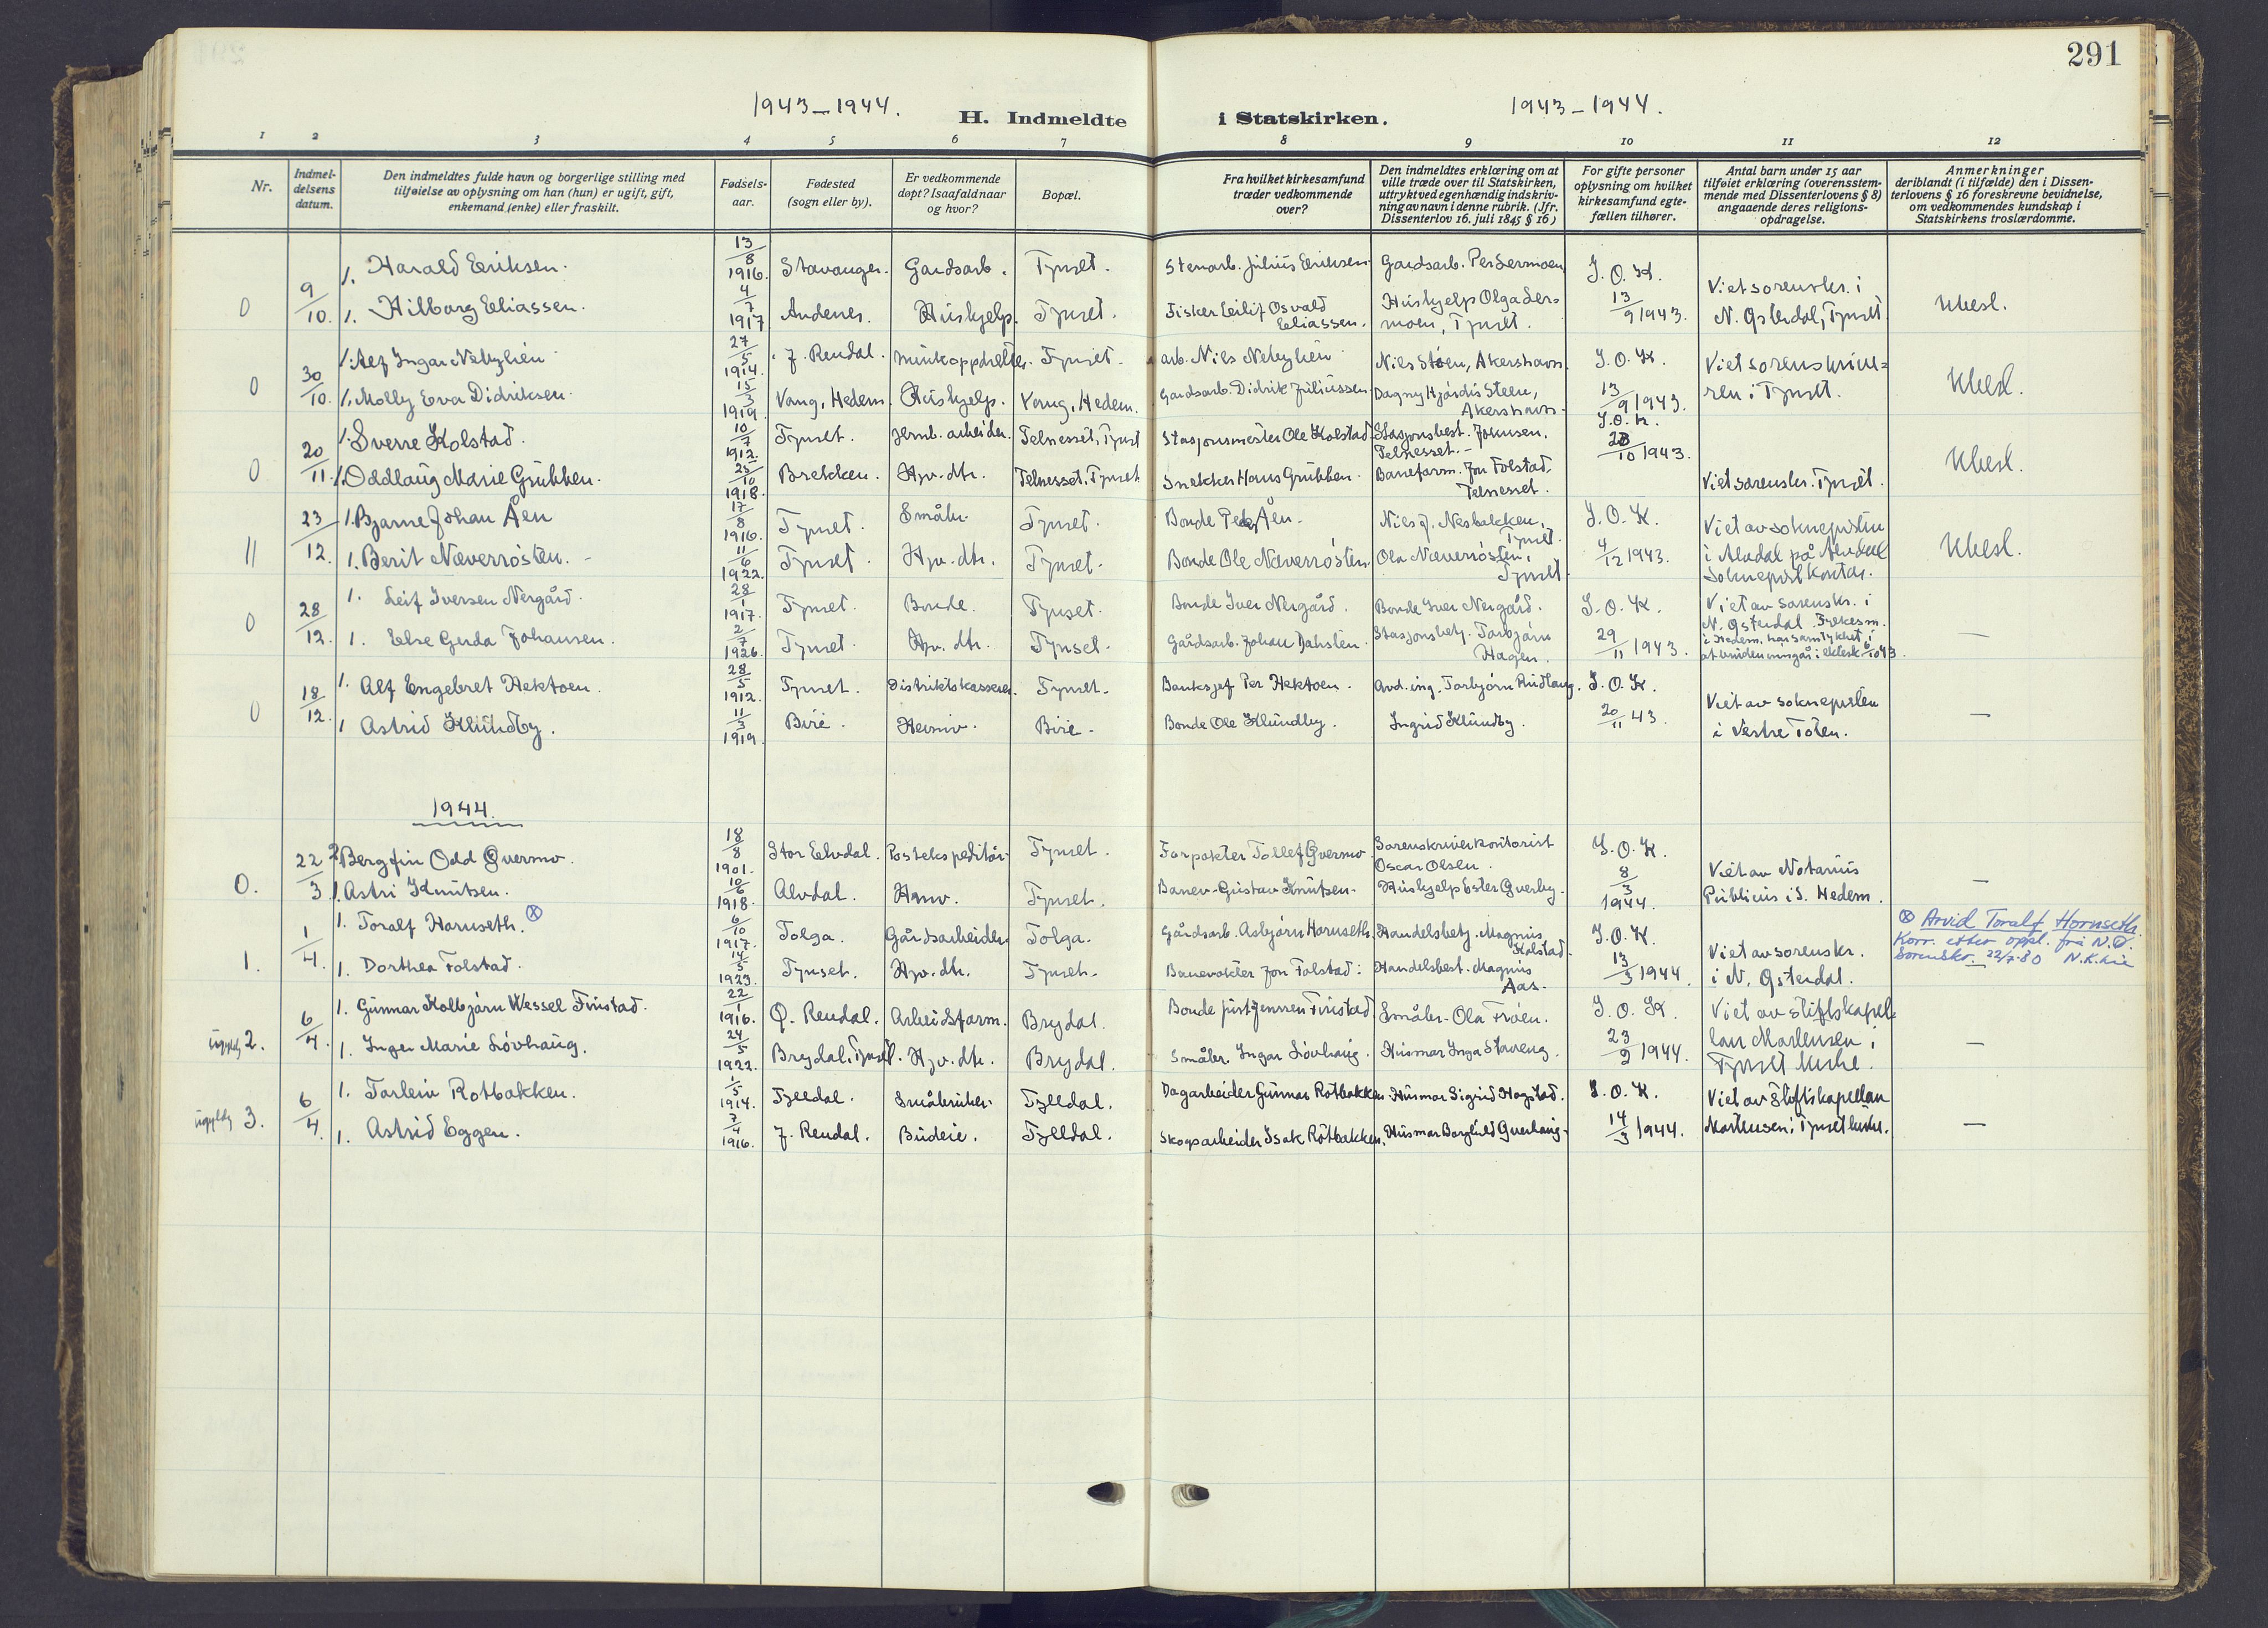 291
1943–1944. 1943–1944.
H. Indmeldte i Statskirken.
1 2 3 4 5 6 7 8 9 10 11 12
Nr.
Indmel-
delsens
datum.
Den indmeldtes fulde navn og borgerlige stilling med
tilføielse av oplysning om han (hun) er ugift, gift,
enkemand (enke) eller fraskilt.
Fødsels-
aar.
Fødested
(sogn eller by).
Er vedkommende
døpt? Isaafald naar
og hvor?
Bopæl.
Fra hvilket kirkesamfund
træder vedkommende
over?
Den indmeldtes erklæring om at
ville træde over til Statskirken,
uttrykt ved egenhændig indskriv-
ning av navn i denne rubrik. (Jfr.
Dissenterlov 16. juli 1845 § 16)
For gifte personer
oplysning om hvilket
kirkesamfund egte-
fællen tilhører.
Antal barn under 15 aar
tilføiet erklæring (overensstem-
mende med Dissenterlovens § 8)
angaaende deres religions-
opdragelse.
Anmerkninger
deriblandt (i tilfælde) den i Dissen-
terlovens § 16 foreskrevne bevidnelse,
om vedkommendes kundskap i
Statskirkens troslærdomme.
0 9/10. 1. Harald Eriksen. 13/8 1916. Stavanger. Gardsarb. Tynset. Stenarb. Julius Eriksen. Gardsarb. Per Sermoen I.O.K.
1. Hilborg Eliassen. 4/7 1917 Andenes. Hushjelp. Tynset. Fisker Eilif Osvald
Eliassen. Hushjelp Olga Ser-
moen, Tynset. 13/9 1943. Viet sorenskr. i
N. Østerdal, Tynset Ubesl.
0 30/10. 1. Alf Ingar Nebylién 27/5 1914. Y. Rendal. minkoppdretter. Tynset. arb. Nils Nebylién Nils Støen, Akershavn. I.O.K. Viet sorenskrive-
1. Molly Eva Didriksen. 15/3 1919. Vang, Hedem. Hushjelp. Vang, Hedem. Gardsarb. Didrik Juliussen. Dagny Hjørdis Steen,
Akershavn. 13/9 1943. ren i Tynset. Ubesl.
0 20/11. 1. Sverre Kolstad. 10/7 1912. Tynset. Jernb. arbeider. Telneset, Tynset Stasjonsmester Ole Kolstad Stasjonsbest. Johnsen.
Telneset. I.O.K.
1. Oddlaug Marie Grubben. 25/10 1918. Brekken. Hjv. dtr. Telneset, Tynset Snekker Hans Grubben. Baneform. Jon Tolstad,
Telneset. 28/10 1943. Viet sorenskr. Tynset. Ubesl.
11 23/12. 1. Bjarne Johan Åen 17/8 1916. Tynset. Småbr. Tynset. Bonde Peder Åen. Nils J. Nesbakken,
Tynset. I.O.K. Viet av sokneprsten
1. Berit Næverrøsten. 11/6 1922. Tynset. Hjv. dtr. Tynset. Bonde Ole Næverrøsten. Ola Næverrøsten,
Tynset. 4/12 1943. i Alvdal på Alvdal
Sokneprstkontor. Ubesl.
0 28/12. 1. Leif Iversen Nergård. 28/1 1917. Tynset. Bonde. Tynset. Bonde Iver Nergård. Bonde Iver Nergård. I.O.K. Viet av sorenskr. i
1. Else Gerda Johansen. 2/7 1926. Tynset. Hjv. dtr. Tynset. Gårdsarb. Johan Dahlsten. Stasjonsbetj. Torbjørn
Hagen. 29/11 1943. N. Østerdal. Fylkesm.
i Hedem. har samtykket i
at bruden inngår i ektesk. 6/10 43. —
0 18/12. 1. Alf Engebret Hektoen. 28/5 1912. Tynset. Distriktskasserer. Tynset. Banksjef Per Hektoen. Avd. ing. Torbjørn Rudlang. I.O.K. Viet av sokneprsten
1. Astrid Klundby. 11/3 1919. Biri. Heimv. Biri. Bonde Ole Klundby. Ingrid Klundby. 20/11 43. i Vestre Toten. —
1944.
0. 22/3 2. Bergfin Odd Øvermo. 18/8 1901. Stor Elvdal. Postekspeditør. Tynset. Forpakter Tollef Øvermo. Sorenskriverkontorist
Oscar Olsen. I.O.K. Viet av Notarius
1. Astri Knutsen. 10/6 1918. Alvdal. Hmv. Tynset. Banev. Gustav Knutsen. Hushjelp Ester Øverby. 8/3 1944. Publicus i S. Hedem. —
1. 1/4. 1. Toralf Hornseth. ⊗ 6/10 1917. Tolga. Gårdsarbeider. Tolga. Gårdsarb. Asbjørn Hornseth. Handelsbetj. Magnus
Kolstad. I.O.K. Viet av sorenskr.
1. Dorthea Tolstad. 14/5 1923. Tynset. Hjv. dtr. Tynset. Banevokter Jon Tolstad. Handelsbest. Magnus
Aas. 13/3 1944. i N. Østerdal. —
⊗ Arvid Toralf Hornseth.
Korr. etter oppl. fra N.Ø.
Sorenskr. 22/7-80 N.K. Lie
ugyldig 2. 6/4. 1. Gunnar Kolbjørn Wessel Finstad. 22/1 1916. Ø. Rendal. Arbeidsform. Brydal. Bonde Just Jenssen Finstad Småbr. Ola Frøen. I.O.K. Viet av stiftskapel-
1. Inger Marie Løvhaug. 24/5 1922. Brydal, Tynset. Hjv. dtr. Brydal. Småbr. Ingar Løvhaug. Husmor Inga Staveng. 23/2 1944. lan Martensen i
Tynset kirke. —
ugyldig 3. 6/4. 1. Torleiv Rotbakken. 1/5 1914. Tylldal. Småbruker. Tylldal. Dagarbeider Gunnar Rotbakken. Husmor Sigrid Hogstad. I.O.K. Viet av Stiftskapellan
1. Astrid Eggen. 7/4 1916. Y. Rendal. Budeie. Tylldal. Skogsarbeider Isak Rotbakken. Husmor Borghild Øverhaug. 14/3 1944. Martensen i Tynset kirke. —